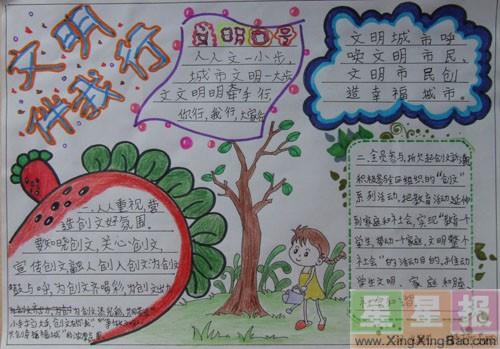 文明
伴我行
文明口号
人人文一小步,
城市文明一大步
文文明明牵手行
你行,我行,大家行
文明城市呼
唤文明市民、
文明市民创
造幸福城市。
一、人人重视,营
造创文好氛围。
敢知晓创文,关心创文,
宣传创文,融入创入创文,为创文
呐与呼,为创文齐喝彩,为创文出力
二、全员参与,掀起创文
积极参与区组织的"创文"
系列活动,把教育活动延伸
到家庭和社会,实现"教育一个
学生,带动一个家庭,文明整个
社会"的活动目的,
学生文明、家庭和睦、
星星报
www.XingXingBao.com